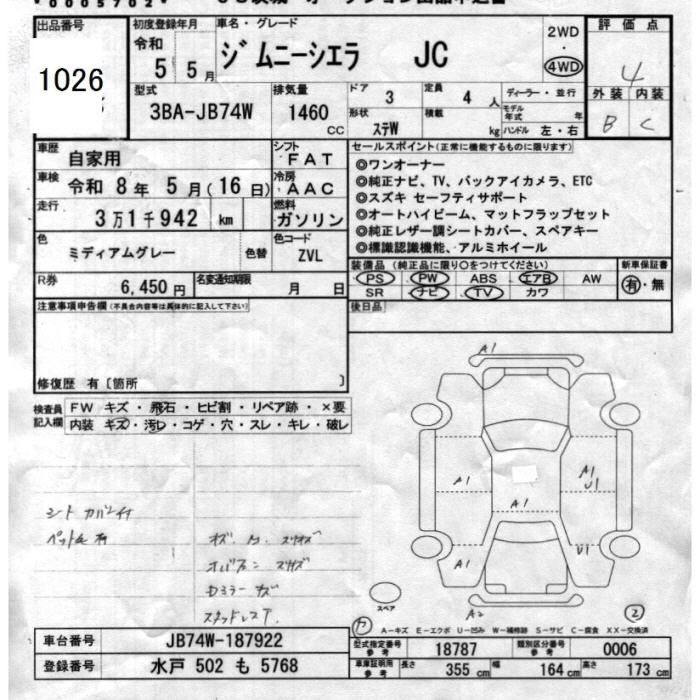 0005702
出品番号
1026
初度登録年月
令和
5 5月
車名・グレード
ジムニーシエラ JC
2WD
・
4WD
評価点
4
外装 内装
B C
型式
3BA-JB74W
排気量
1460 CC
ドア 3
定員 4 人
形状 ステW
積載 kg
ディーラー・並行
モデル年式 年
ハンドル 左・右
車歴 自家用
シフト FAT
車検 令和 8年 5月(16日)
冷房 AAC
走行 3万1千942 km
燃料 ガソリン
色 ミディアムグレー 色替
色コード ZVL
R券 6,450円
名変通知期限 月 日
セールスポイント(正常に機能するものに限ります)
◎ワンオーナー
◎純正ナビ、TV、バックアイカメラ、ETC
◎スズキ セーフティサポート
◎オートハイビーム、マットフラップセット
◎純正レザー調シートカバー、スペアキー
◎標識認識機能、アルミホイール
装備品(純正品に限り○をつけてください)
PS PW ABS エアB AW
SR ナビ TV カワ
新車保証書
有・無
後日品
注意事項申告欄(不具合内容等は具体的に記入して下さい)
修復歴 有〔箇所 〕
検査員記入欄
FW キズ・飛石・ヒビ割・リペア跡・×要
内装 キズ・汚レ・コゲ・穴・スレ・キレ・破レ
シートカバー付
キズ
スタッドレスT
A1
A1
A1
U1
A1
A1
U1
A2
スペア
2
A-キズ E-エクボ U-凹み W-補修跡 S-サビ C-腐食 XX-交換済
車台番号 JB74W-187922
登録番号 水戸 502 も 5768
型式指定番号 参考 18787
類別区分番号 参考 0006
車庫証明用 参考 長さ 355 cm 幅 164 cm 高さ 173 cm